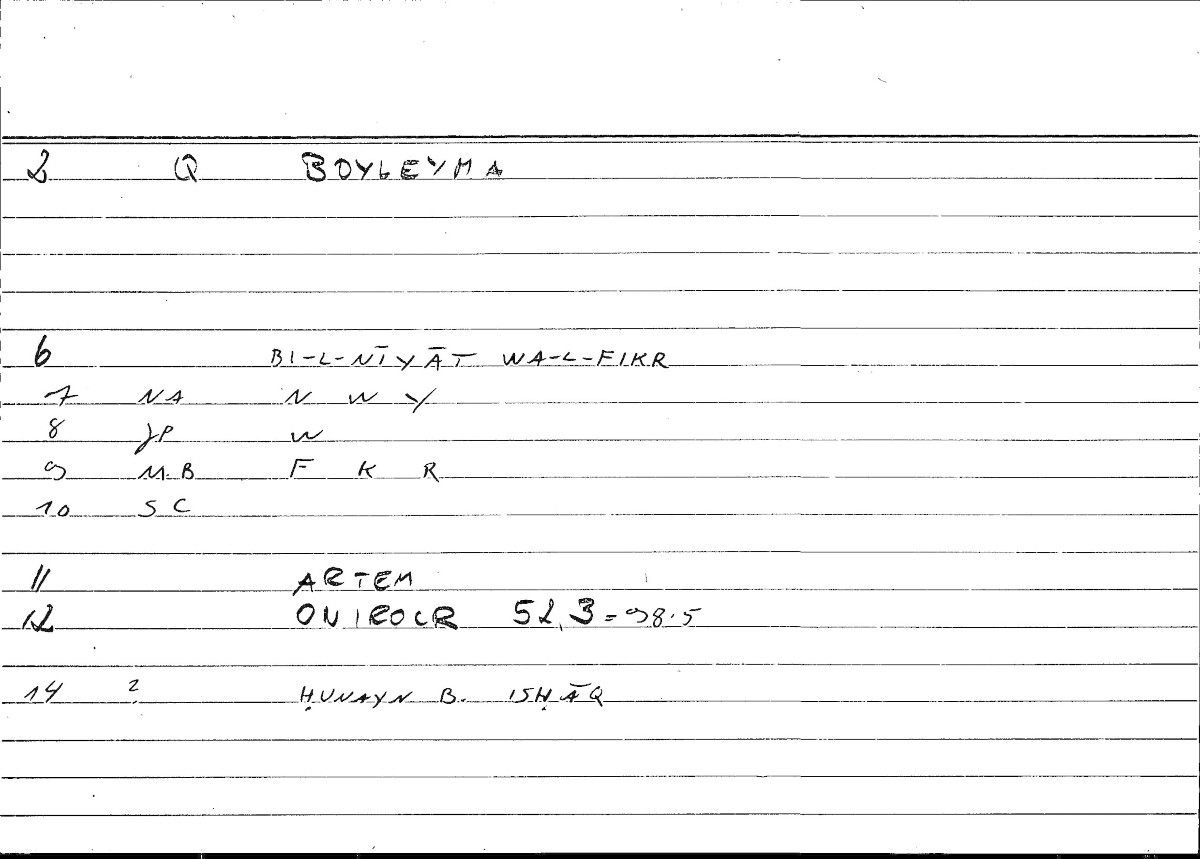 2 Q BOYLEYMA
6 BI-L-NĪYĀT WA-L-FIKR
7 NA N W Y
8 JP W
9 M.B F K R
10 SC
11 ARTEM
12 ONIROCR 52,3=98.5
14 2 ḤUNAYN B. ISḤĀQ